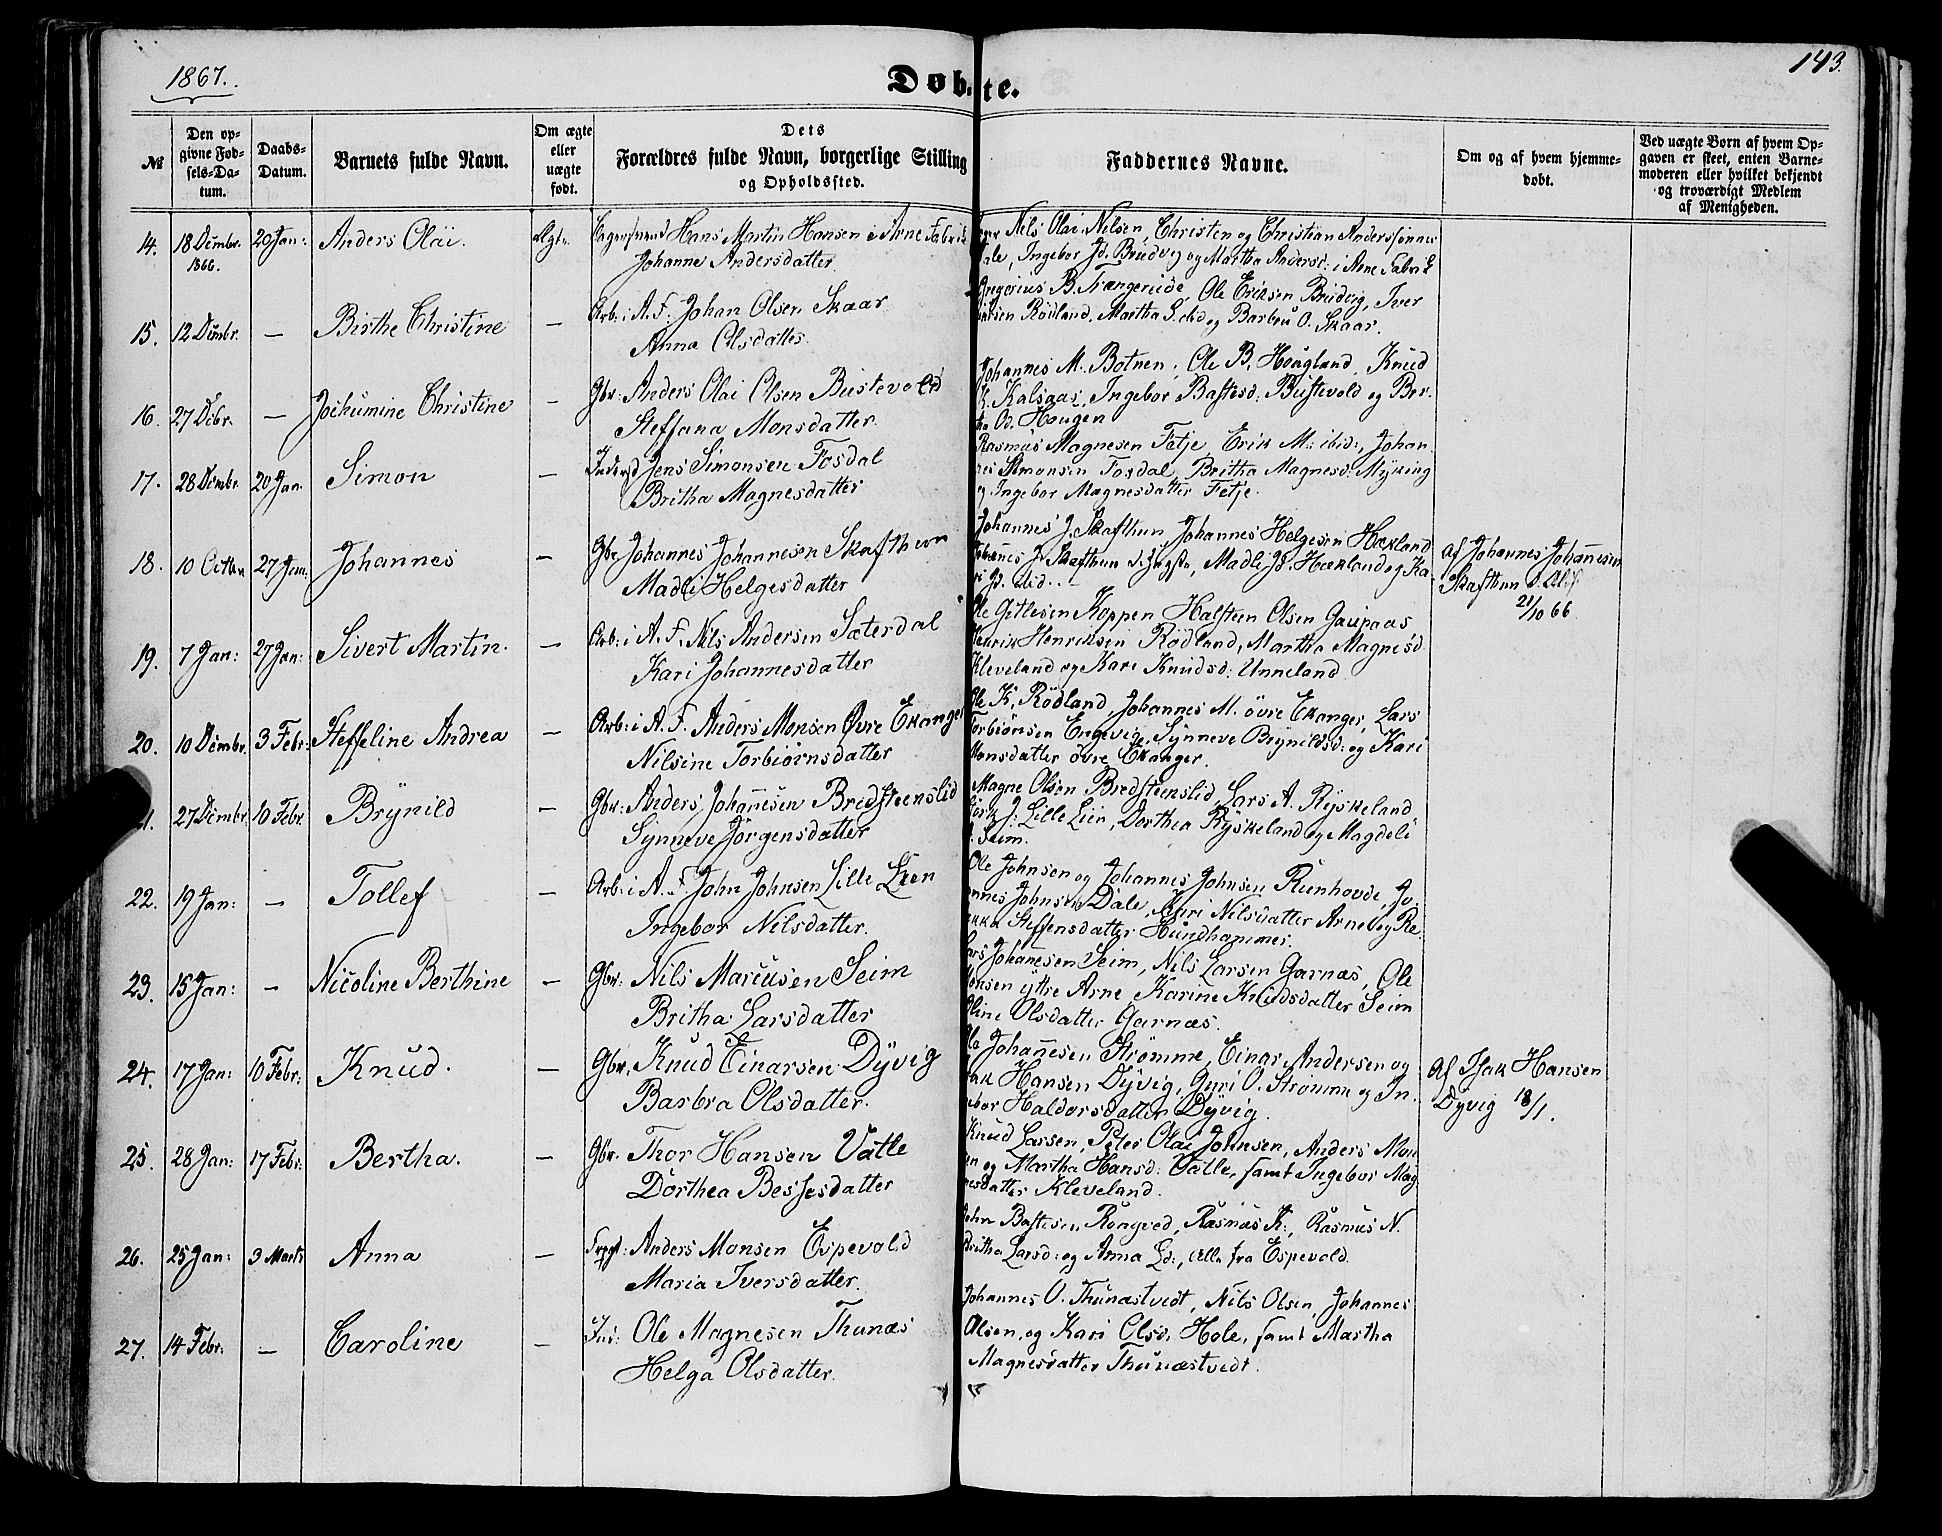 1867.
Døbte.
143.
№
Den opgivne Fødsels-Datum.
Daabs-Datum.
Barnets fulde Navn.
Om ægte eller uægte født.
Dets Forældres fulde Navn, borgerlige Stilling og Opholdssted.
Faddernes Navne.
Om og af hvem hjemmedøbt.
Ved uægte Børn af hvem Opgaven er skeet, enten Barnemoderen eller hvilket bekjendt og troværdigt Medlem af Menigheden.
14. 18 Dcmbr. 1866. 20 Jan: Anders Olai. Ægte.
Hans Martin Hansen i Arne Fabrik
Johanne Andersdatter
Nils Olai Nilsen, Christen og Christian Anderssønner
Dale, Ingebor Jd. Brudvig og Martha Andersd: i Arne Fabrik
15. 12 Dcmbr. — Birthe Christine —
Arb: i A. F. Johan Olsen Skaar
Anna Olsdatter
Gregorius B. Trængereide Ole Eriksen Brudvig, Iver
Rødland, Martha og Barbru O. Skaar.
16. 27 Dcbr. — Jochumine Christine —
Gbr: Anders Olai Olsen Bustevold
Steffana Monsdatter.
Johannes M. Botnen. Ole B. Hougland, Knud
K. Kalsaas, Ingebor Bastesd: Bustevold og Ber-
tha Od. Hougen
17. 28 Dcmbr 20 Jan. Simon —
Inderst Jens Simonsen Fosdal
Britha Magnesdatter
Rasmus Magnesen Fetje Erik M: ibid:, Johan-
nes Simonsen Fosdal, Britha Magnesd: Myking
og Ingebor Magnesdatter Fetje.
18. 10 Octbr 27 Jan: Johannes —
Gbr Johannes Johannesen Skafthun
Madli Helgesdatter
Johannes J. Skafthun, Johannes Helgesen Hækland
Johannes J. Skafthun d. Yngste, Madli Jd. Hækland og Ka-
ri Jd. ibid.
Af Johannes Johannesen
Skafthun d. Æld
21/10 66
19. 7 Jan: 27 Jan: Sivert Martin. —
Arb: i A. F. Nils Andersen Sæterdal
Kari Johannesdatter
Ole Gitlesen Koppen Halsteen Olsen Gaupaas
Henrik Henriksen Rødland, Martha Magnesd
Kleveland og Kari Knudsd: Unneland
20. 10 Dcmbr. 3 Febr: Steffeline Andrea —
Arb: i A. F. Anders Monsen Øvre Ekanger
Nilsine Torbiørnsdatter
Ole K. Rødland, Johannes M. øvre Ekanger, Lars
Torbiønsen Engevig, Synneve Brynildsd: og Kari
Monsdatter øvre Ekanger.
21. 27 Dcmbr. 10 Febr. Brynild —
Gbr: Anders Johannesen Bredsteenslid
Synneve Jørgensdatter
Magne Olsen Bredsteenslid, Lars A. Ryskeland
J: Lille Lien, Dorthea Ryskeland og Magdeli
Seim.
22. 19 Jan: — Tollef —
Arb: i A. F. John Johnsen Lille Lien
Ingebor Nilsdatter.
Ole Johnsen og Johannes Johnsen Runhovde, Jo-
hannes Johnsen Dale, Guri Nilsdatter Arne og Re-
bekka Steffensdatter Hundhammer.
23. 15 Jan: — Nicoline Berthine —
Gbr: Nils Marcusen Seim
Britha Larsdatter
Lars Johannesen Seim, Nils Larsen Garnæs, Ole
Monsen yttre Arne Karine Knudsdatter Seim
Oline Olsdatter Garnæs.
24. 17 Jan: 10 Febr: Knud. —
Gbr. Knud Einarsen Dyvig
Barbra Olsdatter.
Ole Johannesen Strømme, Einar Andersen og
Isak Hansen Dyvig, Guri O. Strømme og In-
gebor Haldorsdatter Dyvig.
Af Isak Hansen
Dyvig 18/1.
25. 28 Jan: 17 Febr: Bertha. —
Gbr. Thor Hansen Vatle
Dorthea Bessesdatter
Knud Larsen, Peter Olai Johnsen, Anders Mon-
sen og Martha Hansd: Vatle, samt Ingebor Mag-
nesdatter Kleveland.
26. 25 Jan: 3 Marts Anna —
Anders Monsen Espevold
Maria Iversdatter.
John Bastesen Rongved, Rasmus K:, Rasmus N.
Britha Larsd: og Anna Ld:, Alle fra Espevold.
27. 14 Febr: — Caroline —
Ind: Ole Magnesen Thunæs
Helga Olsdatter.
Johannes O. Thunæstvedt, Nils Olsen, Johannes
Olsen, og Kari Olsd. Hole, samt Martha
Magnesdatter Thunæstvedt.